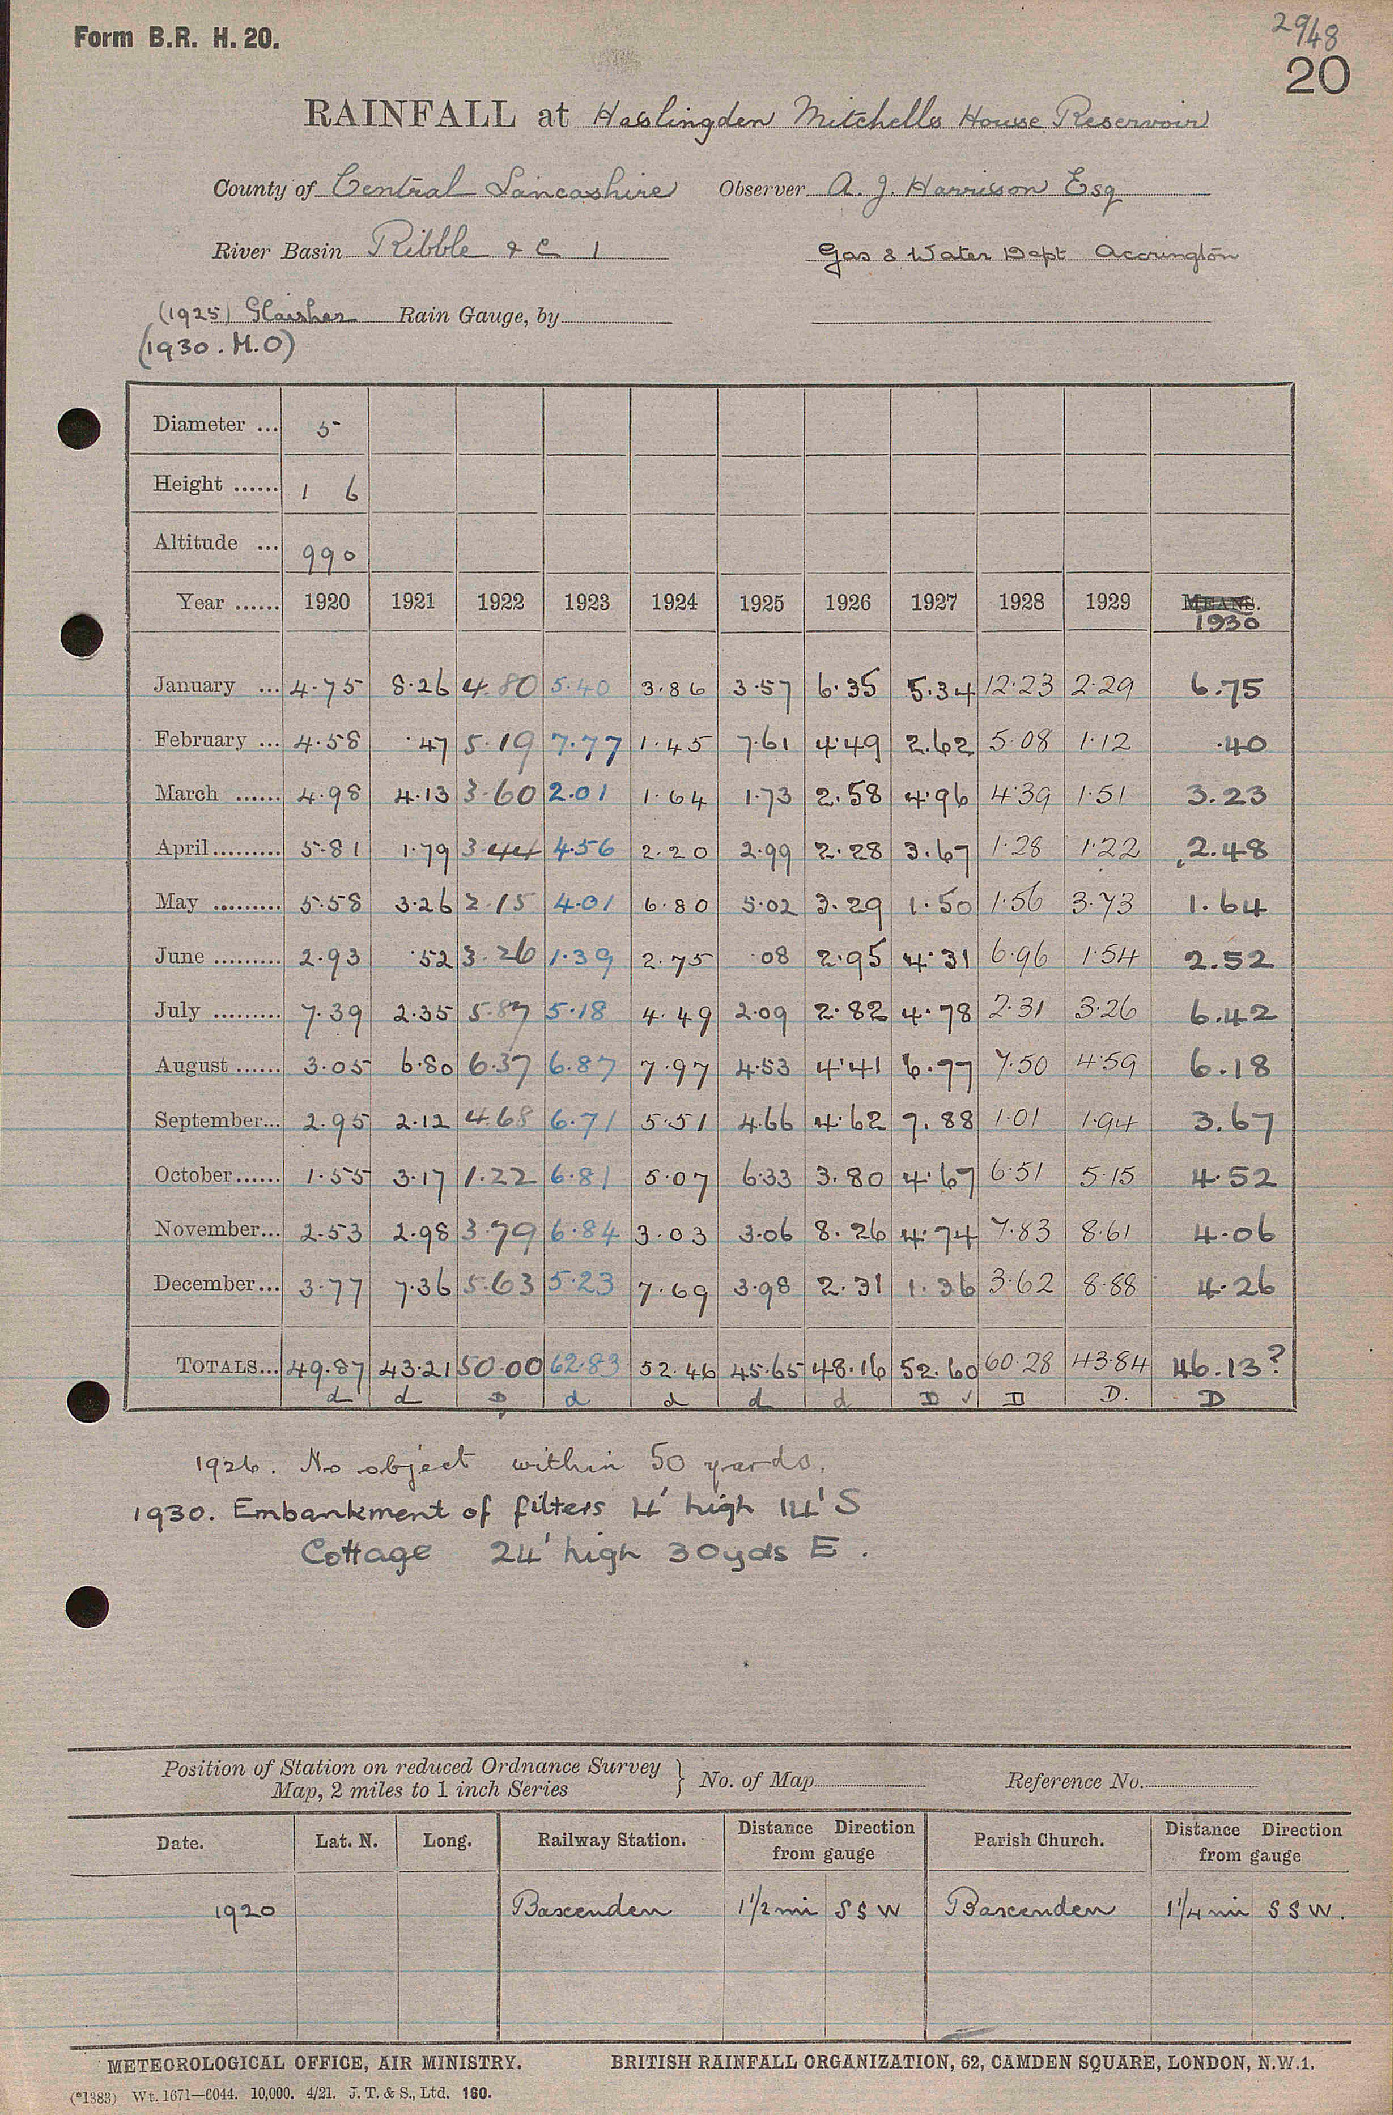 Form B.R. H. 20.
29/48
20
RAINFALL at Haslingden Mitchells House Reservoir
County of Central Lancashire Observer A. J. Harrison Esq
River Basin Ribble & C 1 Gas & Water Dept Accrington
(1925) Glaisher Rain Gauge, by
(1930. M.O)
Diameter ... 5
Height ...... 1 6
Altitude ... 990
Year ...... 1920 1921 1922 1923 1924 1925 1926 1927 1928 1929 MEANS.
1930
January ... 4.75 8.26 4.80 5.40 3.86 3.57 6.35 5.34 12.23 2.29 6.75
February ... 4.58 .47 5.19 7.77 1.45 7.61 4.49 2.62 5.08 1.12 .40
March ...... 4.98 4.13 3.60 2.01 1.64 1.73 2.58 4.96 4.39 1.51 3.23
April ......... 5.81 1.79 3.44 4.56 2.20 2.99 2.28 3.67 1.28 1.22 2.48
May ......... 5.58 3.26 2.15 4.01 6.80 5.02 3.29 1.50 1.56 3.73 1.64
June ......... 2.93 .52 3.26 1.39 2.75 .08 2.95 4.31 6.96 1.54 2.52
July ......... 7.39 2.35 5.87 5.18 4.49 2.09 2.82 4.78 2.31 3.26 6.42
August ...... 3.05 6.80 6.37 6.87 7.97 4.53 4.41 6.77 7.50 4.59 6.18
September... 2.95 2.12 4.68 6.71 5.51 4.66 4.62 7.88 1.01 1.94 3.67
October ...... 1.55 3.17 1.22 6.81 5.07 6.33 3.80 4.67 6.51 5.15 4.52
November... 2.53 2.98 3.79 6.84 3.03 3.06 8.26 4.74 7.83 8.61 4.06
December... 3.77 7.36 5.63 5.23 7.69 3.98 2.31 1.36 3.62 8.88 4.26
TOTALS... 49.87 43.21 50.00 62.83 52.46 45.65 48.16 52.60 60.28 43.84 46.13?
d d D d d d d D ✓ D D. D
1926. No object within 50 yards.
1930. Embankment of filters 4' high 14' S
Cottage 24' high 30yds E.
Position of Station on reduced Ordnance Survey
Map, 2 miles to 1 inch Series } No. of Map Reference No.
Date. Lat. N. Long. Railway Station. Distance Direction from gauge Parish Church. Distance Direction from gauge
1920 Baxenden 1 1/2 mi S S W Baxenden 1 1/4 mi S S W.
METEOROLOGICAL OFFICE, AIR MINISTRY. BRITISH RAINFALL ORGANIZATION, 62, CAMDEN SQUARE, LONDON, N.W.1.
(*1383) Wt. 1671—6044. 10,000. 4/21. J. T. & S., Ltd. 160.